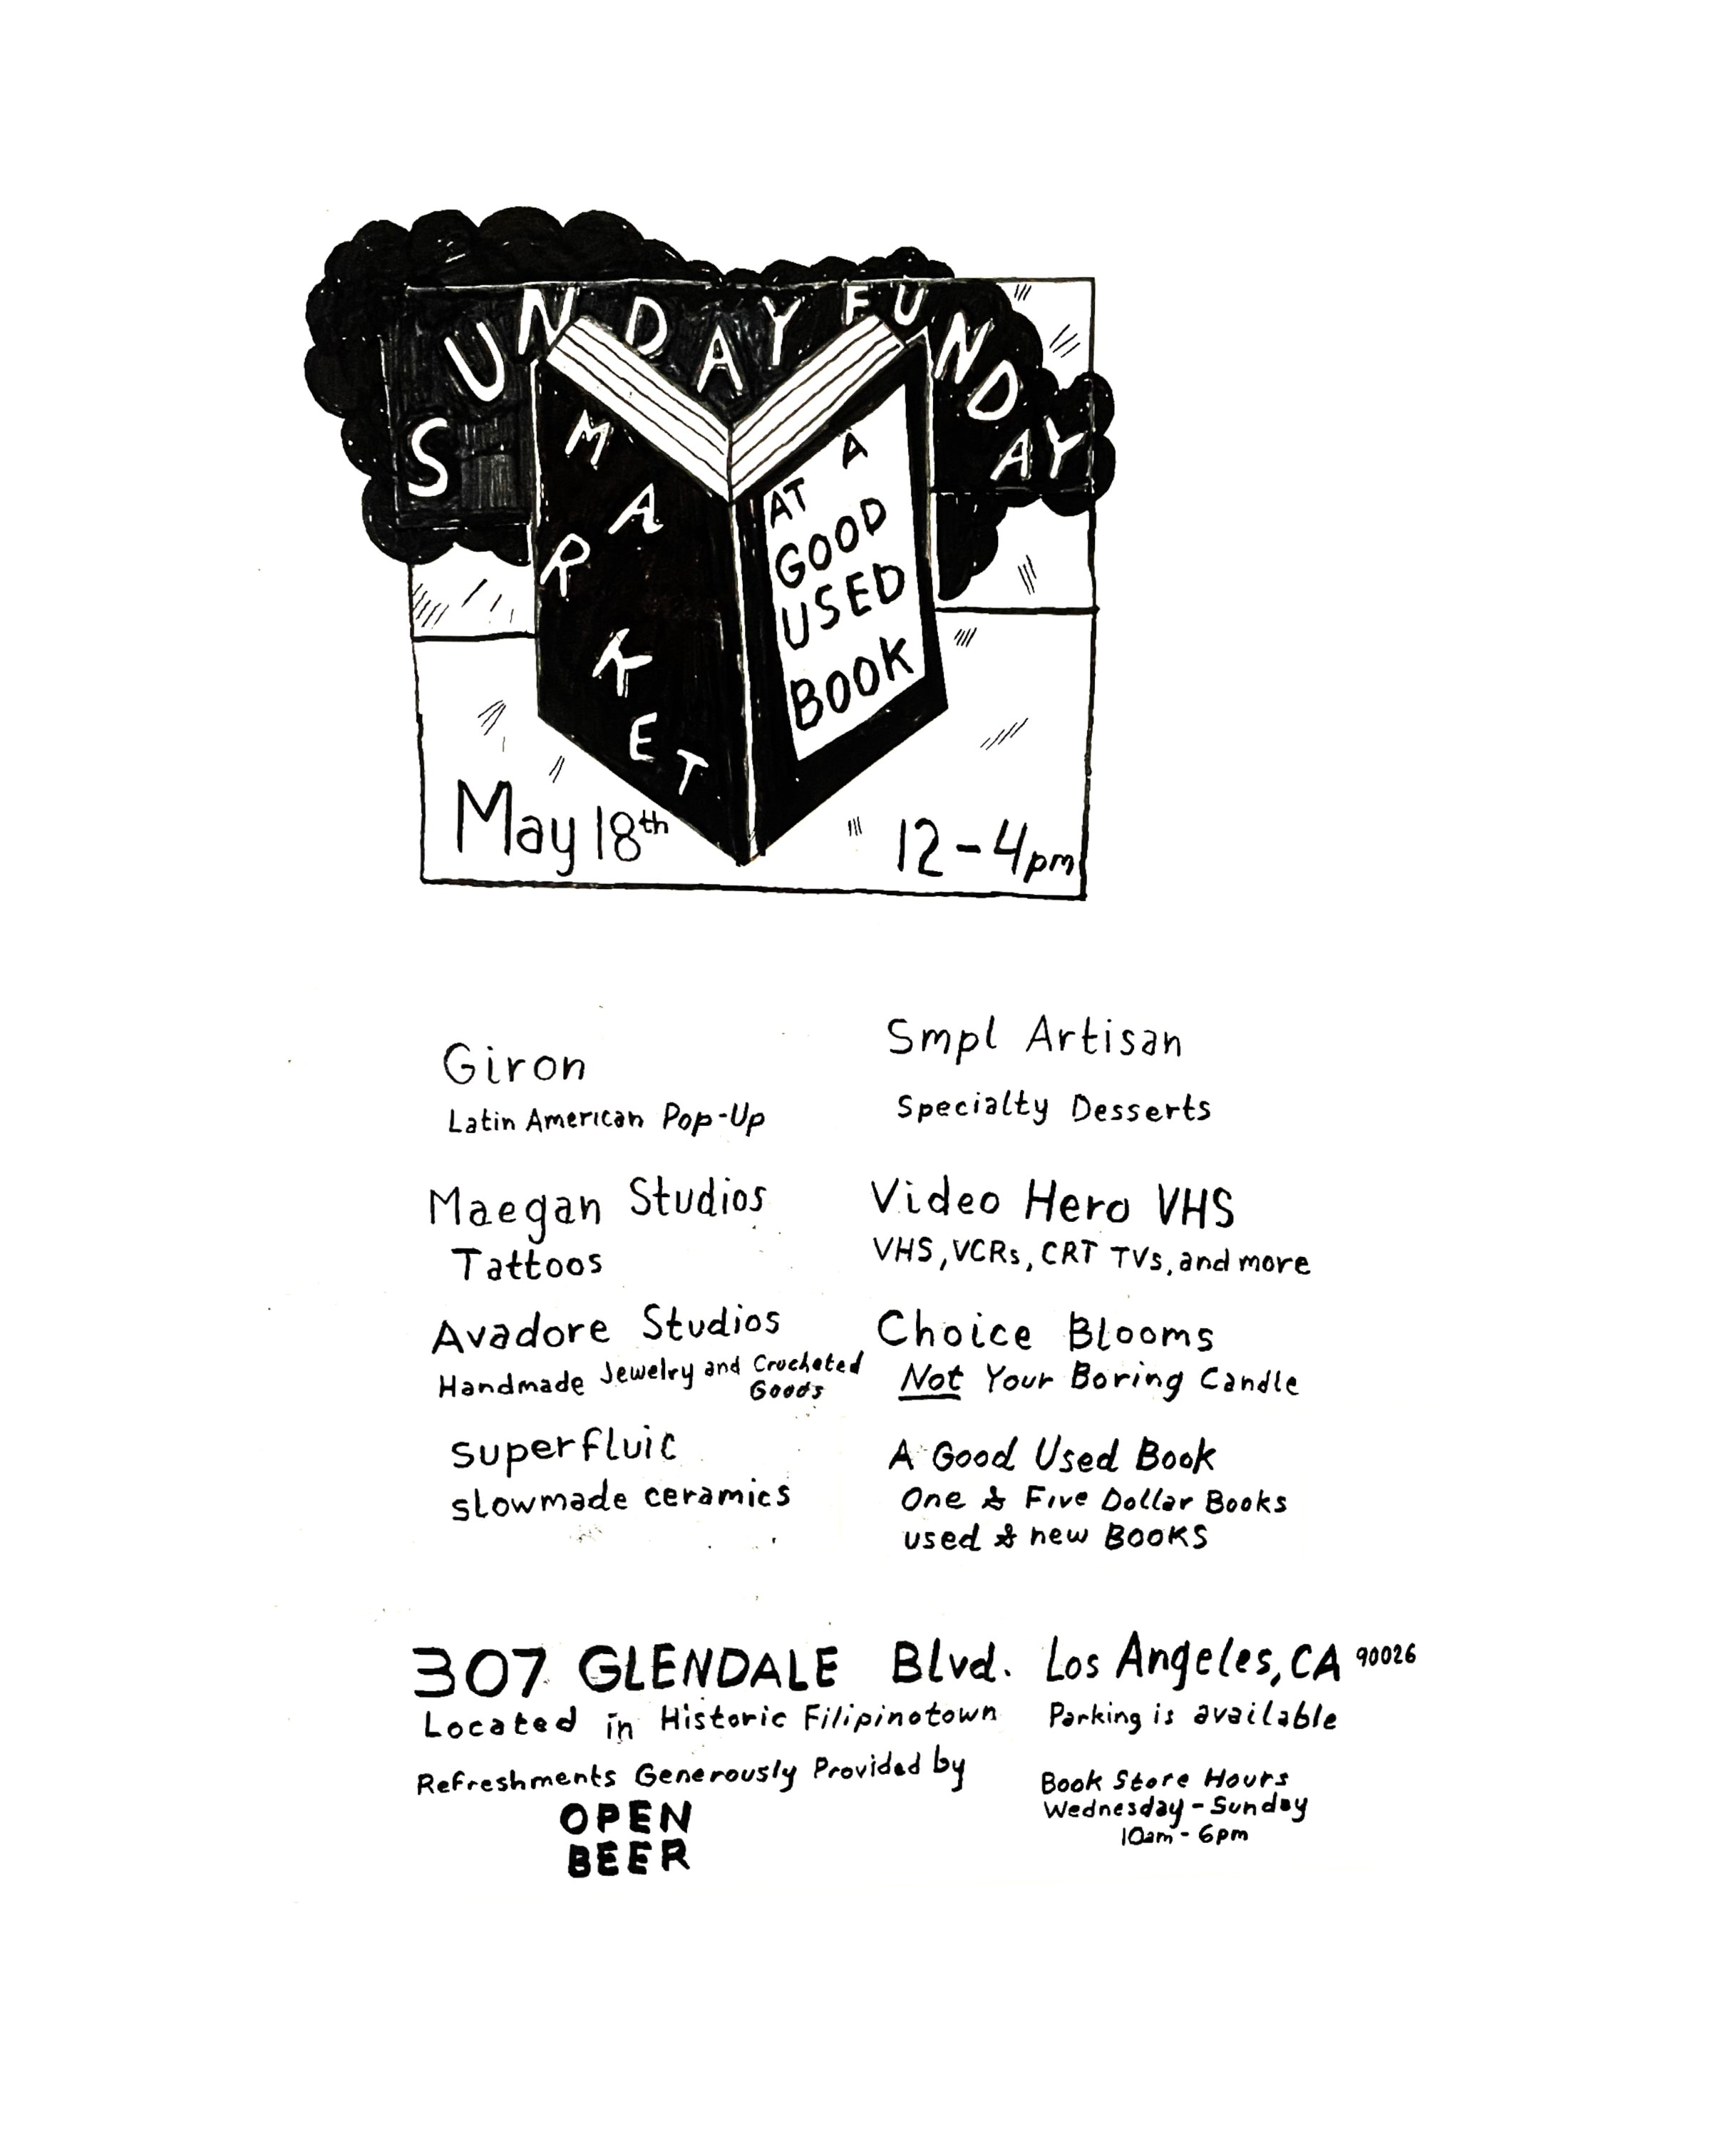 SUNDAY FUNDAY
MARKET
AT A
GOOD
USED
BOOK
May 18th
12-4pm
Giron
Latin American Pop-Up
Maegan Studios
Tattoos
Avadore Studios
Handmade Jewelry and Crocheted
Goods
superfluic
slowmade ceramics
Smpl Artisan
Specialty Desserts
Video Hero VHS
VHS, VCRs, CRT TVs, and more
Choice Blooms
Not Your Boring Candle
A Good Used Book
One & Five Dollar Books
used & new BOOKS
307 GLENDALE Blvd. Los Angeles, CA 90026
Located in Historic Filipinotown
Parking is available
Refreshments Generously Provided by
OPEN
BEER
Book Store Hours
Wednesday - Sunday
10am - 6pm